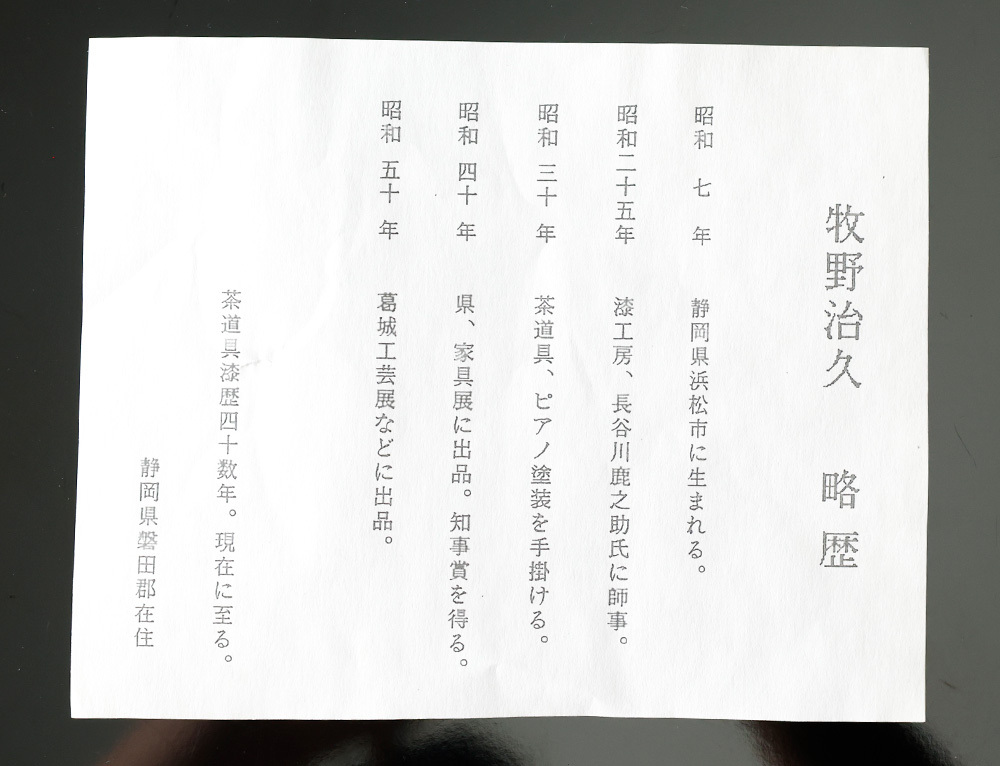 牧野治久　略歴
昭和　七　年　静岡県浜松市に生まれる。
昭和二十五年　漆工房、長谷川鹿之助氏に師事。
昭和　三十　年　茶道具、ピアノ塗装を手掛ける。
昭和　四十　年　県、家具展に出品。知事賞を得る。
昭和　五十　年　葛城工芸展などに出品。
茶道具漆歴四十数年。現在に至る。
静岡県磐田郡在住